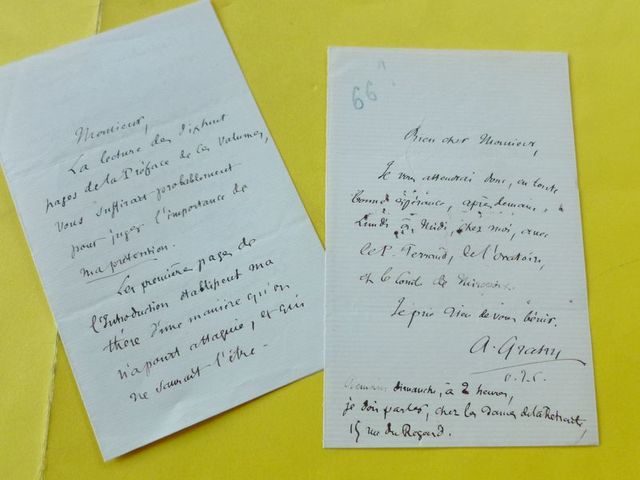 Monsieur,
La lecture des dixhuit
pages de la Préface de ces Volumes,
vous suffirait probablement
pour juger l'importance de
ma prétention.
Les première pages de
l'Introduction établissent ma
thèse d'une manière qu'on
n'a point attaquée, et qui
ne saurait l'être -
66
Bien cher Monsieur,
Je vous attendrai donc, en toute
bonne espérance, après demain,
Lundi à Midi, chez moi, avec
le P. Ferraud, de l'oratoire,
et le Comte de
Je prie Dieu de vous bénir.
A. Gratry
dimanche, à 2 heures,
je dois parler, chez les Dames de la Retraite,
15 rue du Regard.